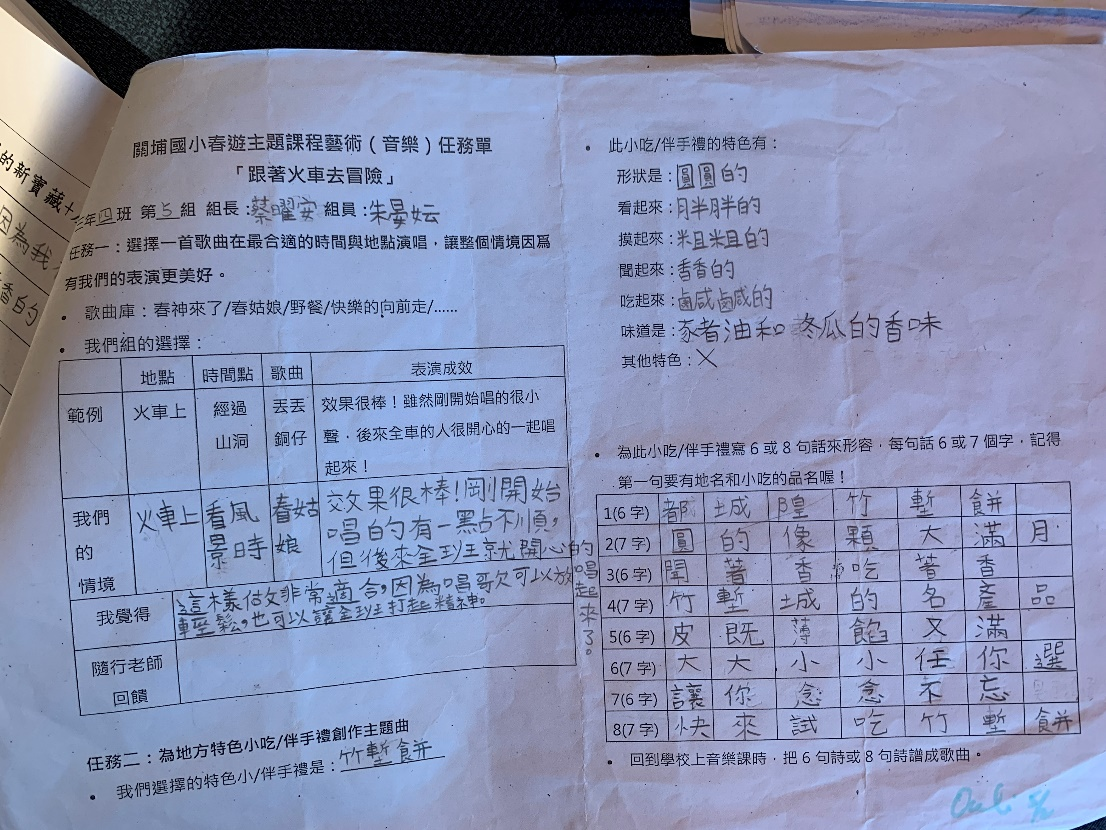 的新寶藏十
因為我
香的
關埔國小春遊主題課程藝術(音樂)任務單
「跟著火車去冒險」
三年四班 第5組 組長:蔡曜安 組員:朱晏妘
任務一:選擇一首歌曲在最合適的時間與地點演唱,讓整個情境因為
有我們的表演更美好。
• 歌曲庫:春神來了/春姑娘/野餐/快樂的向前走/......
• 我們組的選擇:
地點 時間點 歌曲 表演成效
範例 火車上 經過山洞 丟丟銅仔 效果很棒!雖然剛開始唱的很小
聲,後來全車的人很開心的一起唱
起來!
我們的情境 火車上 看風景時 春姑娘 效果很棒!剛開始
唱的有一點不順,
但後來全班就開心的唱起來了。
我覺得 這樣做非常適合,因為唱歌可以放
輕鬆,也可以讓全班打起精神。
隨行老師
回饋
任務二:為地方特色小吃/伴手禮創作主題曲
• 我們選擇的特色小/伴手禮是:竹塹餅
• 此小吃/伴手禮的特色有:
形狀是:圓圓的
看起來:胖胖的
摸起來:粗粗的
聞起來:香香的
吃起來:鹹鹹的
味道是:豬油和冬瓜的香味
其他特色:X
• 為此小吃/伴手禮寫6或8句話來形容,每句話6或7個字,記得
第一句要有地名和小吃的品名喔!
1(6字) 都城隍竹塹餅
2(7字) 圓的像顆大滿月
3(6字) 聞著香吃著香
4(7字) 竹塹城的名產品
5(6字) 皮既薄餡又滿
6(7字) 大大小小任你選
7(6字) 讓你念念不忘
8(7字) 快來試吃竹塹餅
• 回到學校上音樂課時,把6句詩或8句詩譜成歌曲。